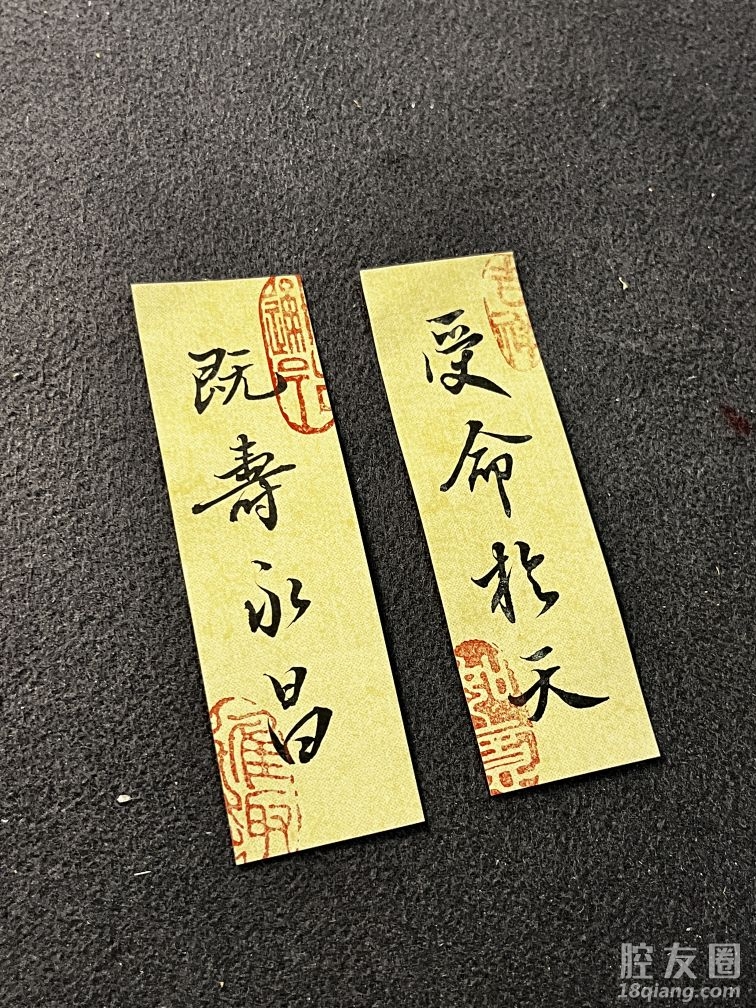 受命於天
既壽永昌
腔友圈
18qiang.com